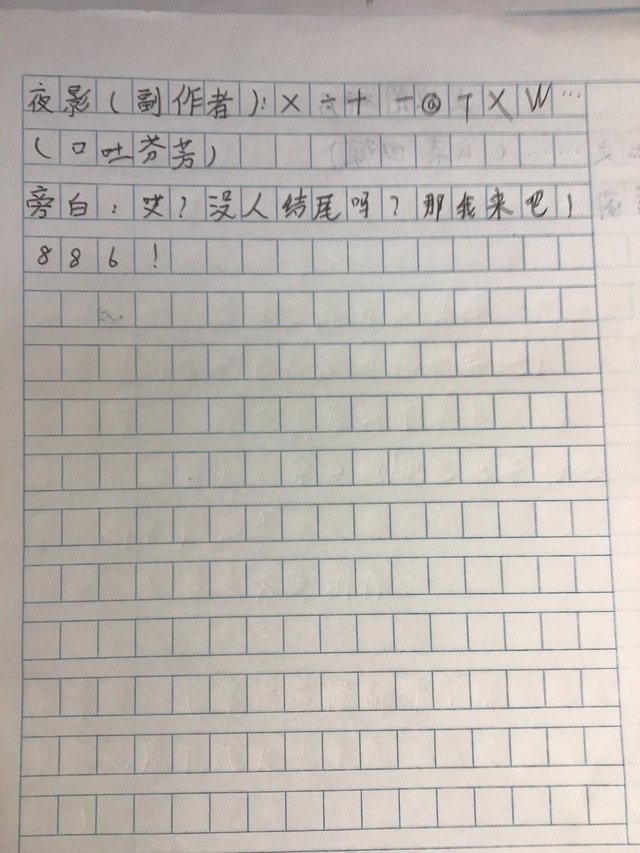 夜影(副作者):×÷+-@T×W…
(口吐芬芳)
旁白:哎?没人结尾吗?那我来吧!
886!